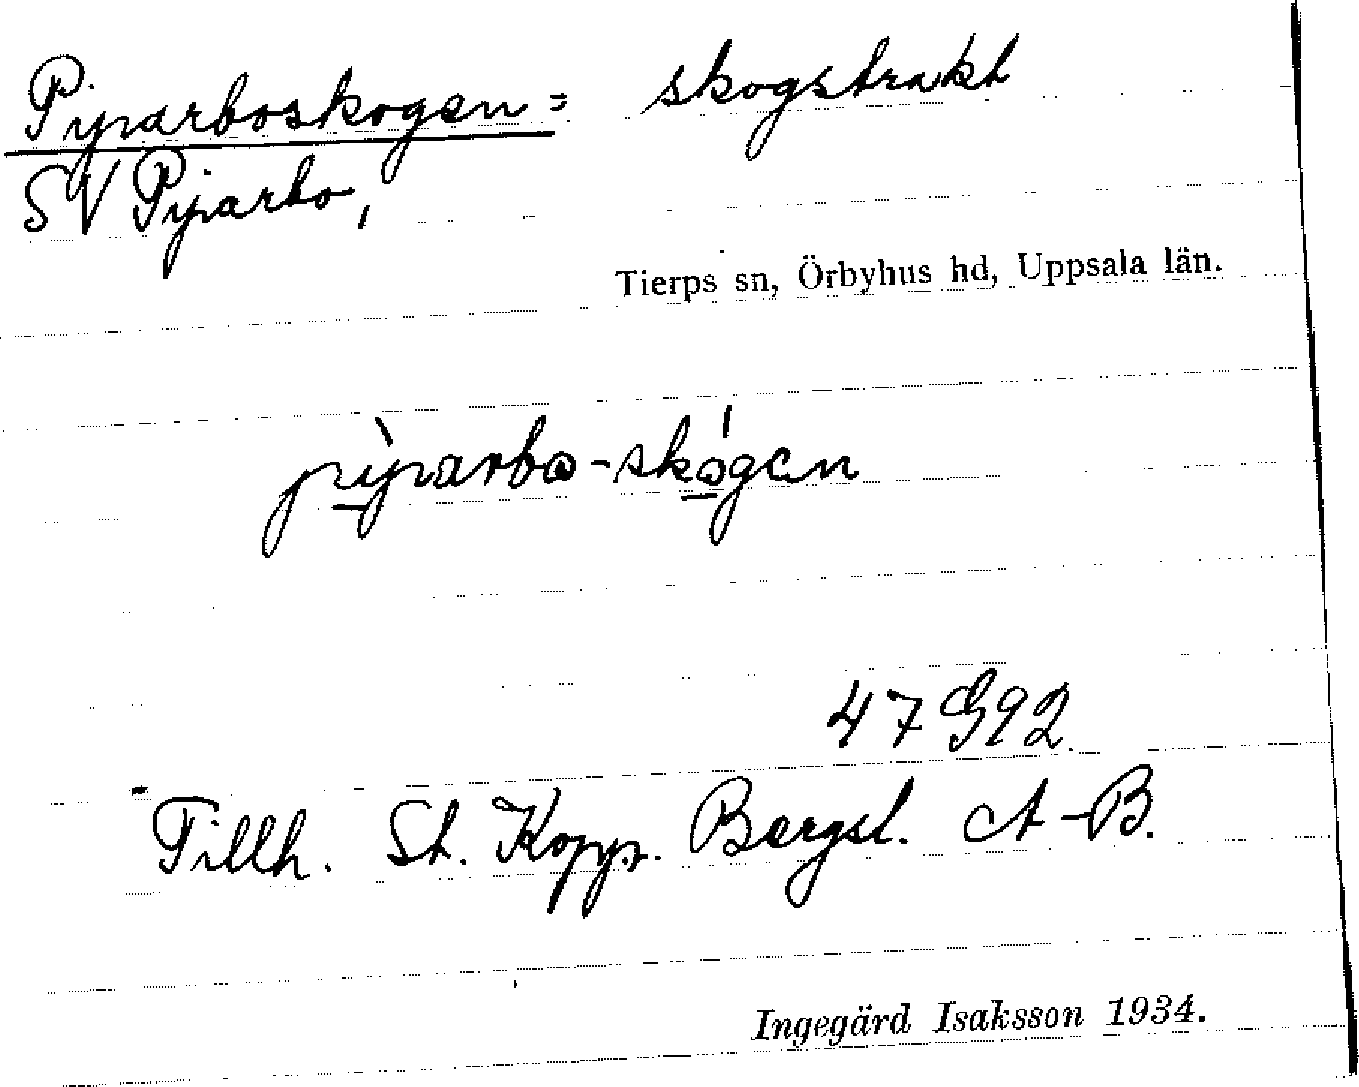 Piparboskogen = skogstrakt
SV Piparbo,
Tierps sn, Örbyhus hd, Uppsala län.
pìparbo-skógen
47 G92
Tillh. St. Kopp. Bergsl. A-B.
Ingegärd Isaksson 1934.